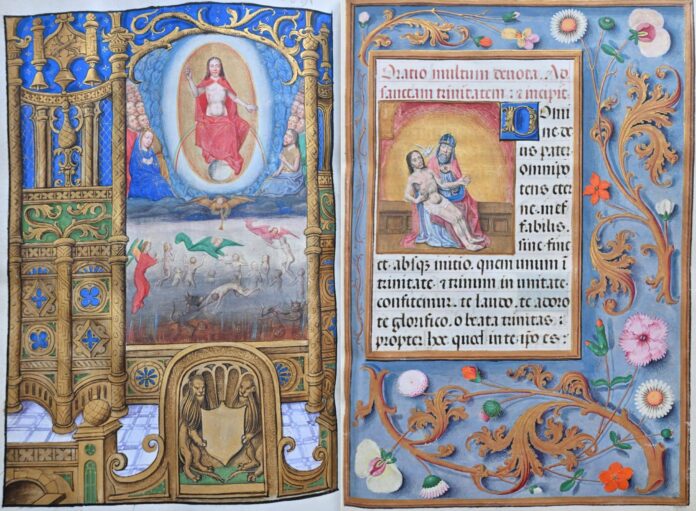 Oratio multum deuota. Ad
sanctam trinitatem : ⁊ incipit.
Domi
ne de
us pater
omnipo
tens eter
ne. inef
fabilis.
sine fine
et absq; initio. quem unum ī
trinitate. ⁊ trinum in unitate
confitemur. te laudo. te adoro
te glorifico. o beata trinitas :
propter hec quod in te ip̄o es :